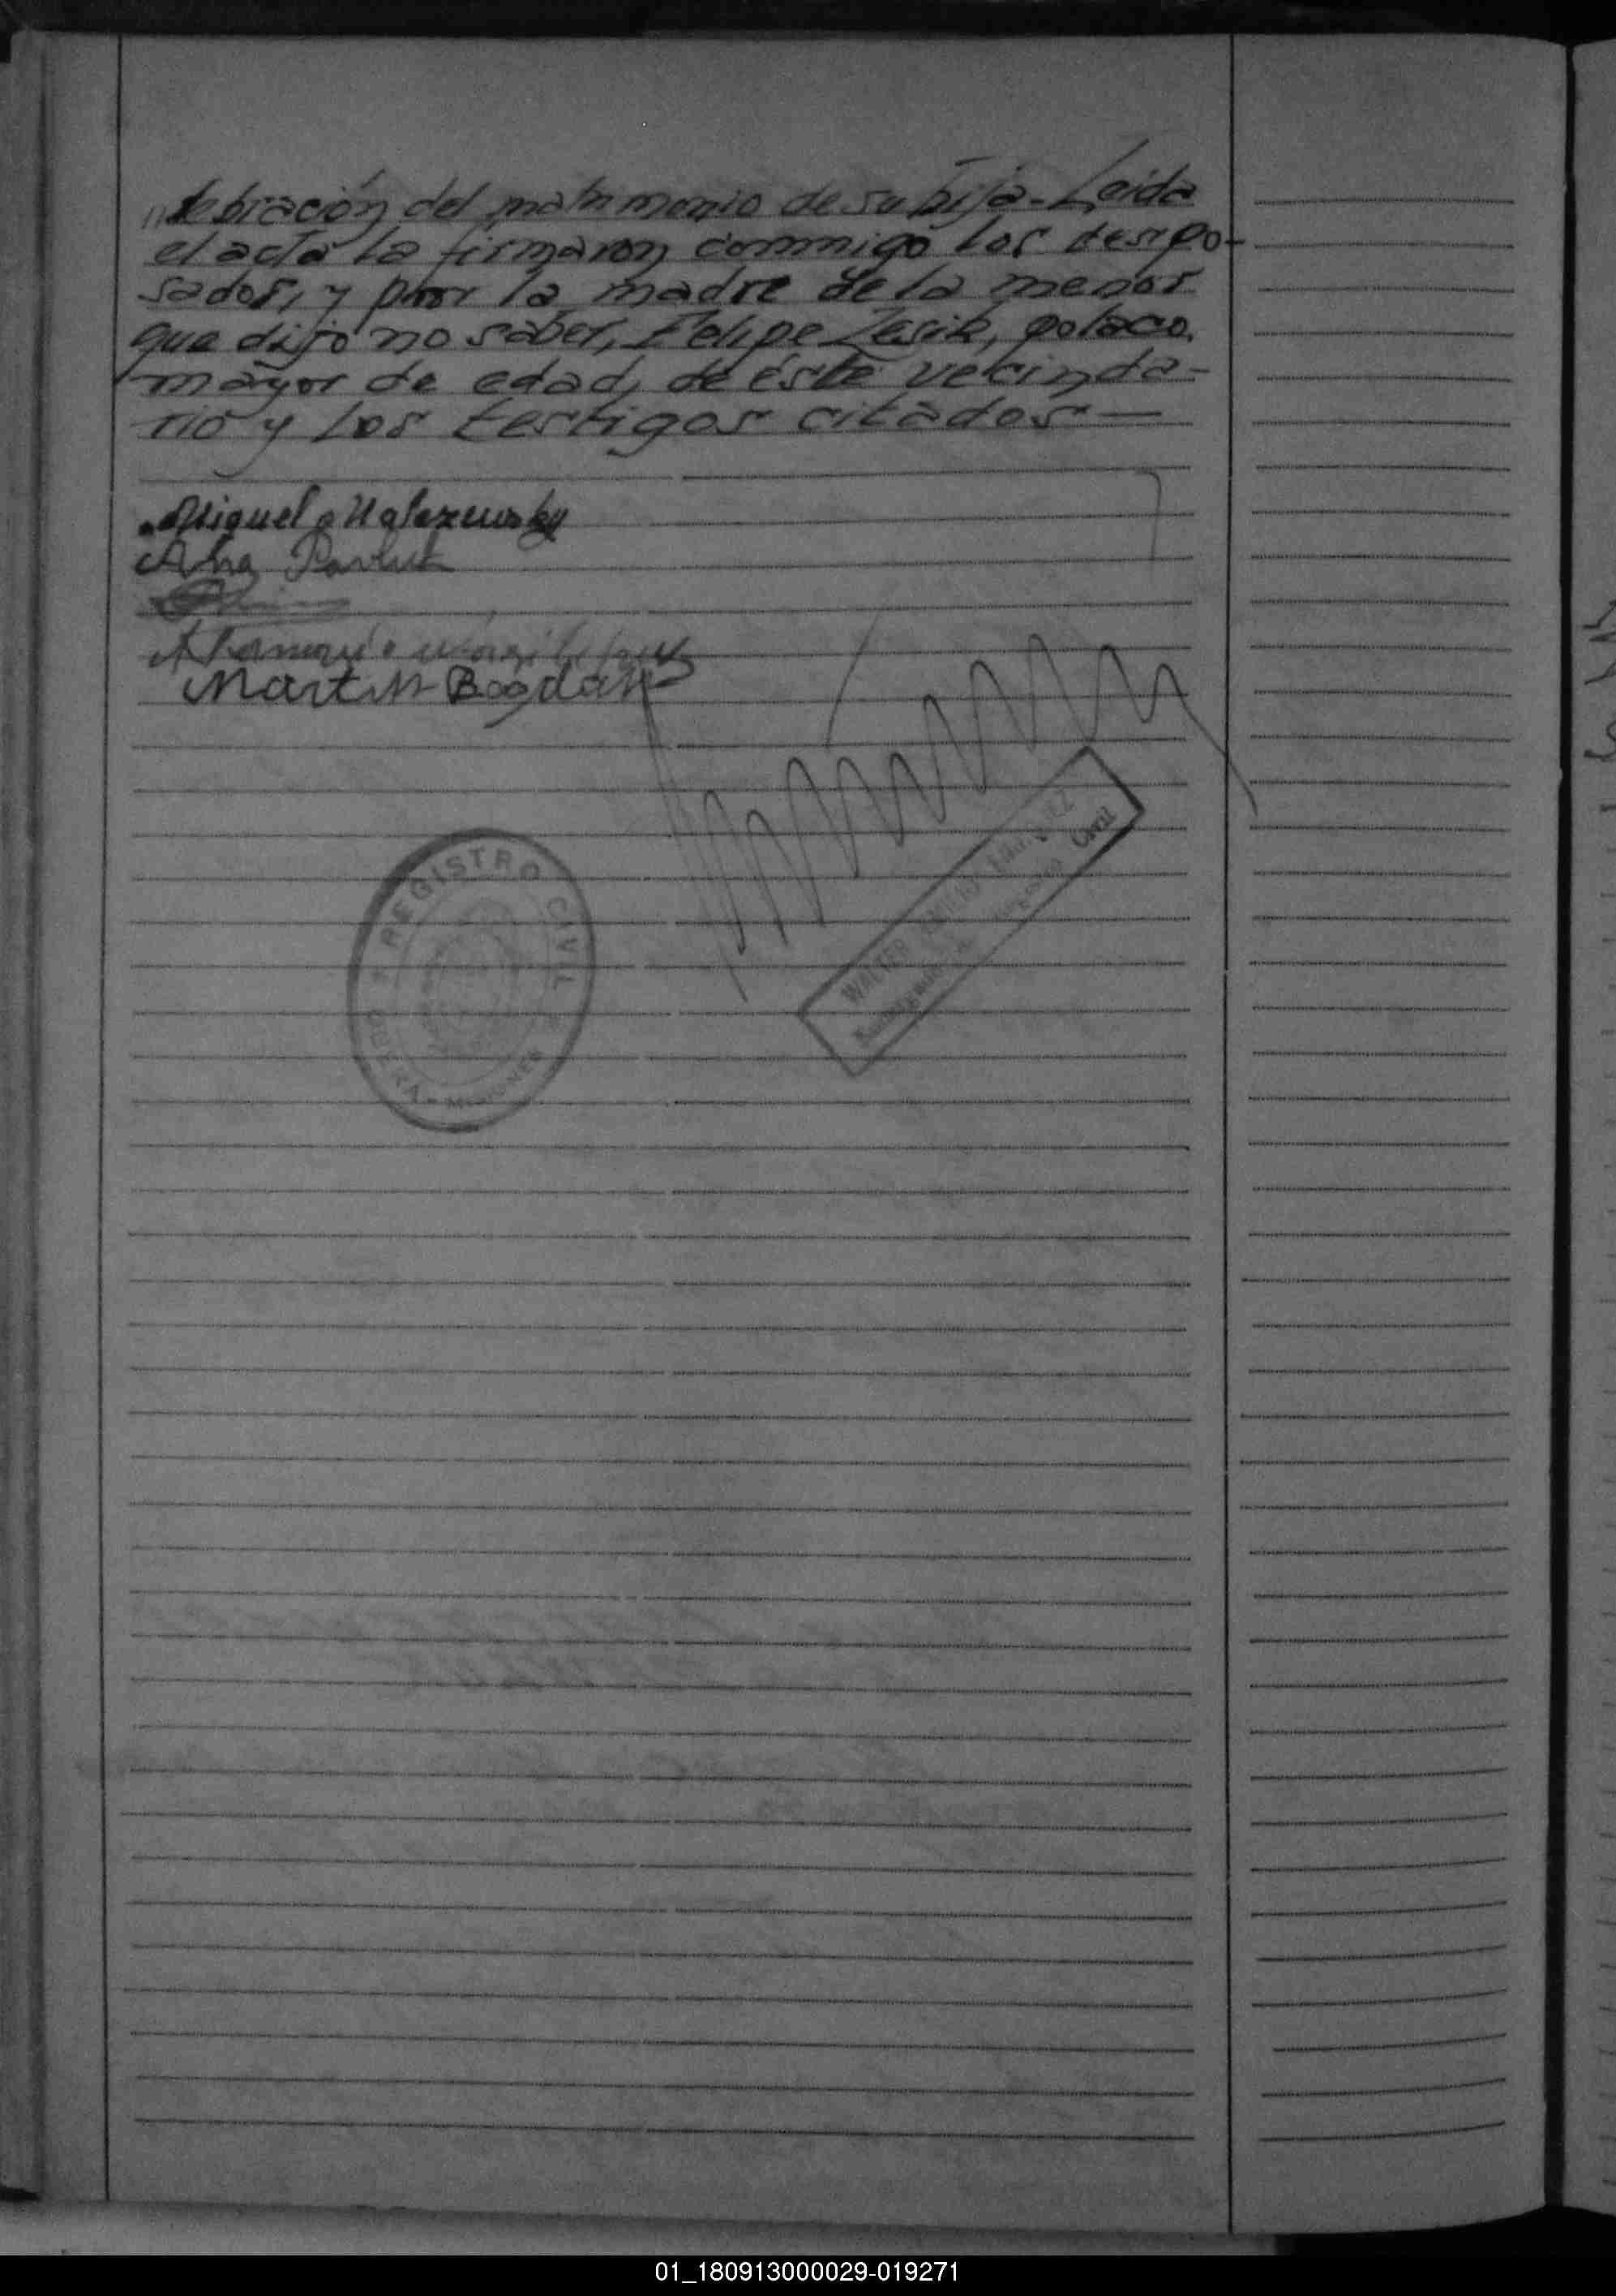 lebración del matrimonio de su hija - Leida
el acta la firmaron conmigo los despo-
sados, y por la madre de la menor
que dijo no saber, Felipe Lesik, polaco,
mayor de edad, de éste vecinda-
rio y los testigos citados —
Miguel
Ana Pavluk
Martin Bogdan
REGISTRO CIVIL
OBERA - MISIONES
WALTER
Civil
01_180913000029-019271